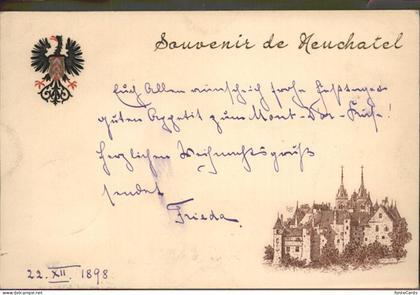 Souvenir de Neuchatel
Euch Allen wünsch ich frohe Festtage
guten Appetit zum Mont-Dor-Käse!
herzlichen Weihnachtsgruß
sendet
Frieda.
22. XII. 1898
PontoCards.com